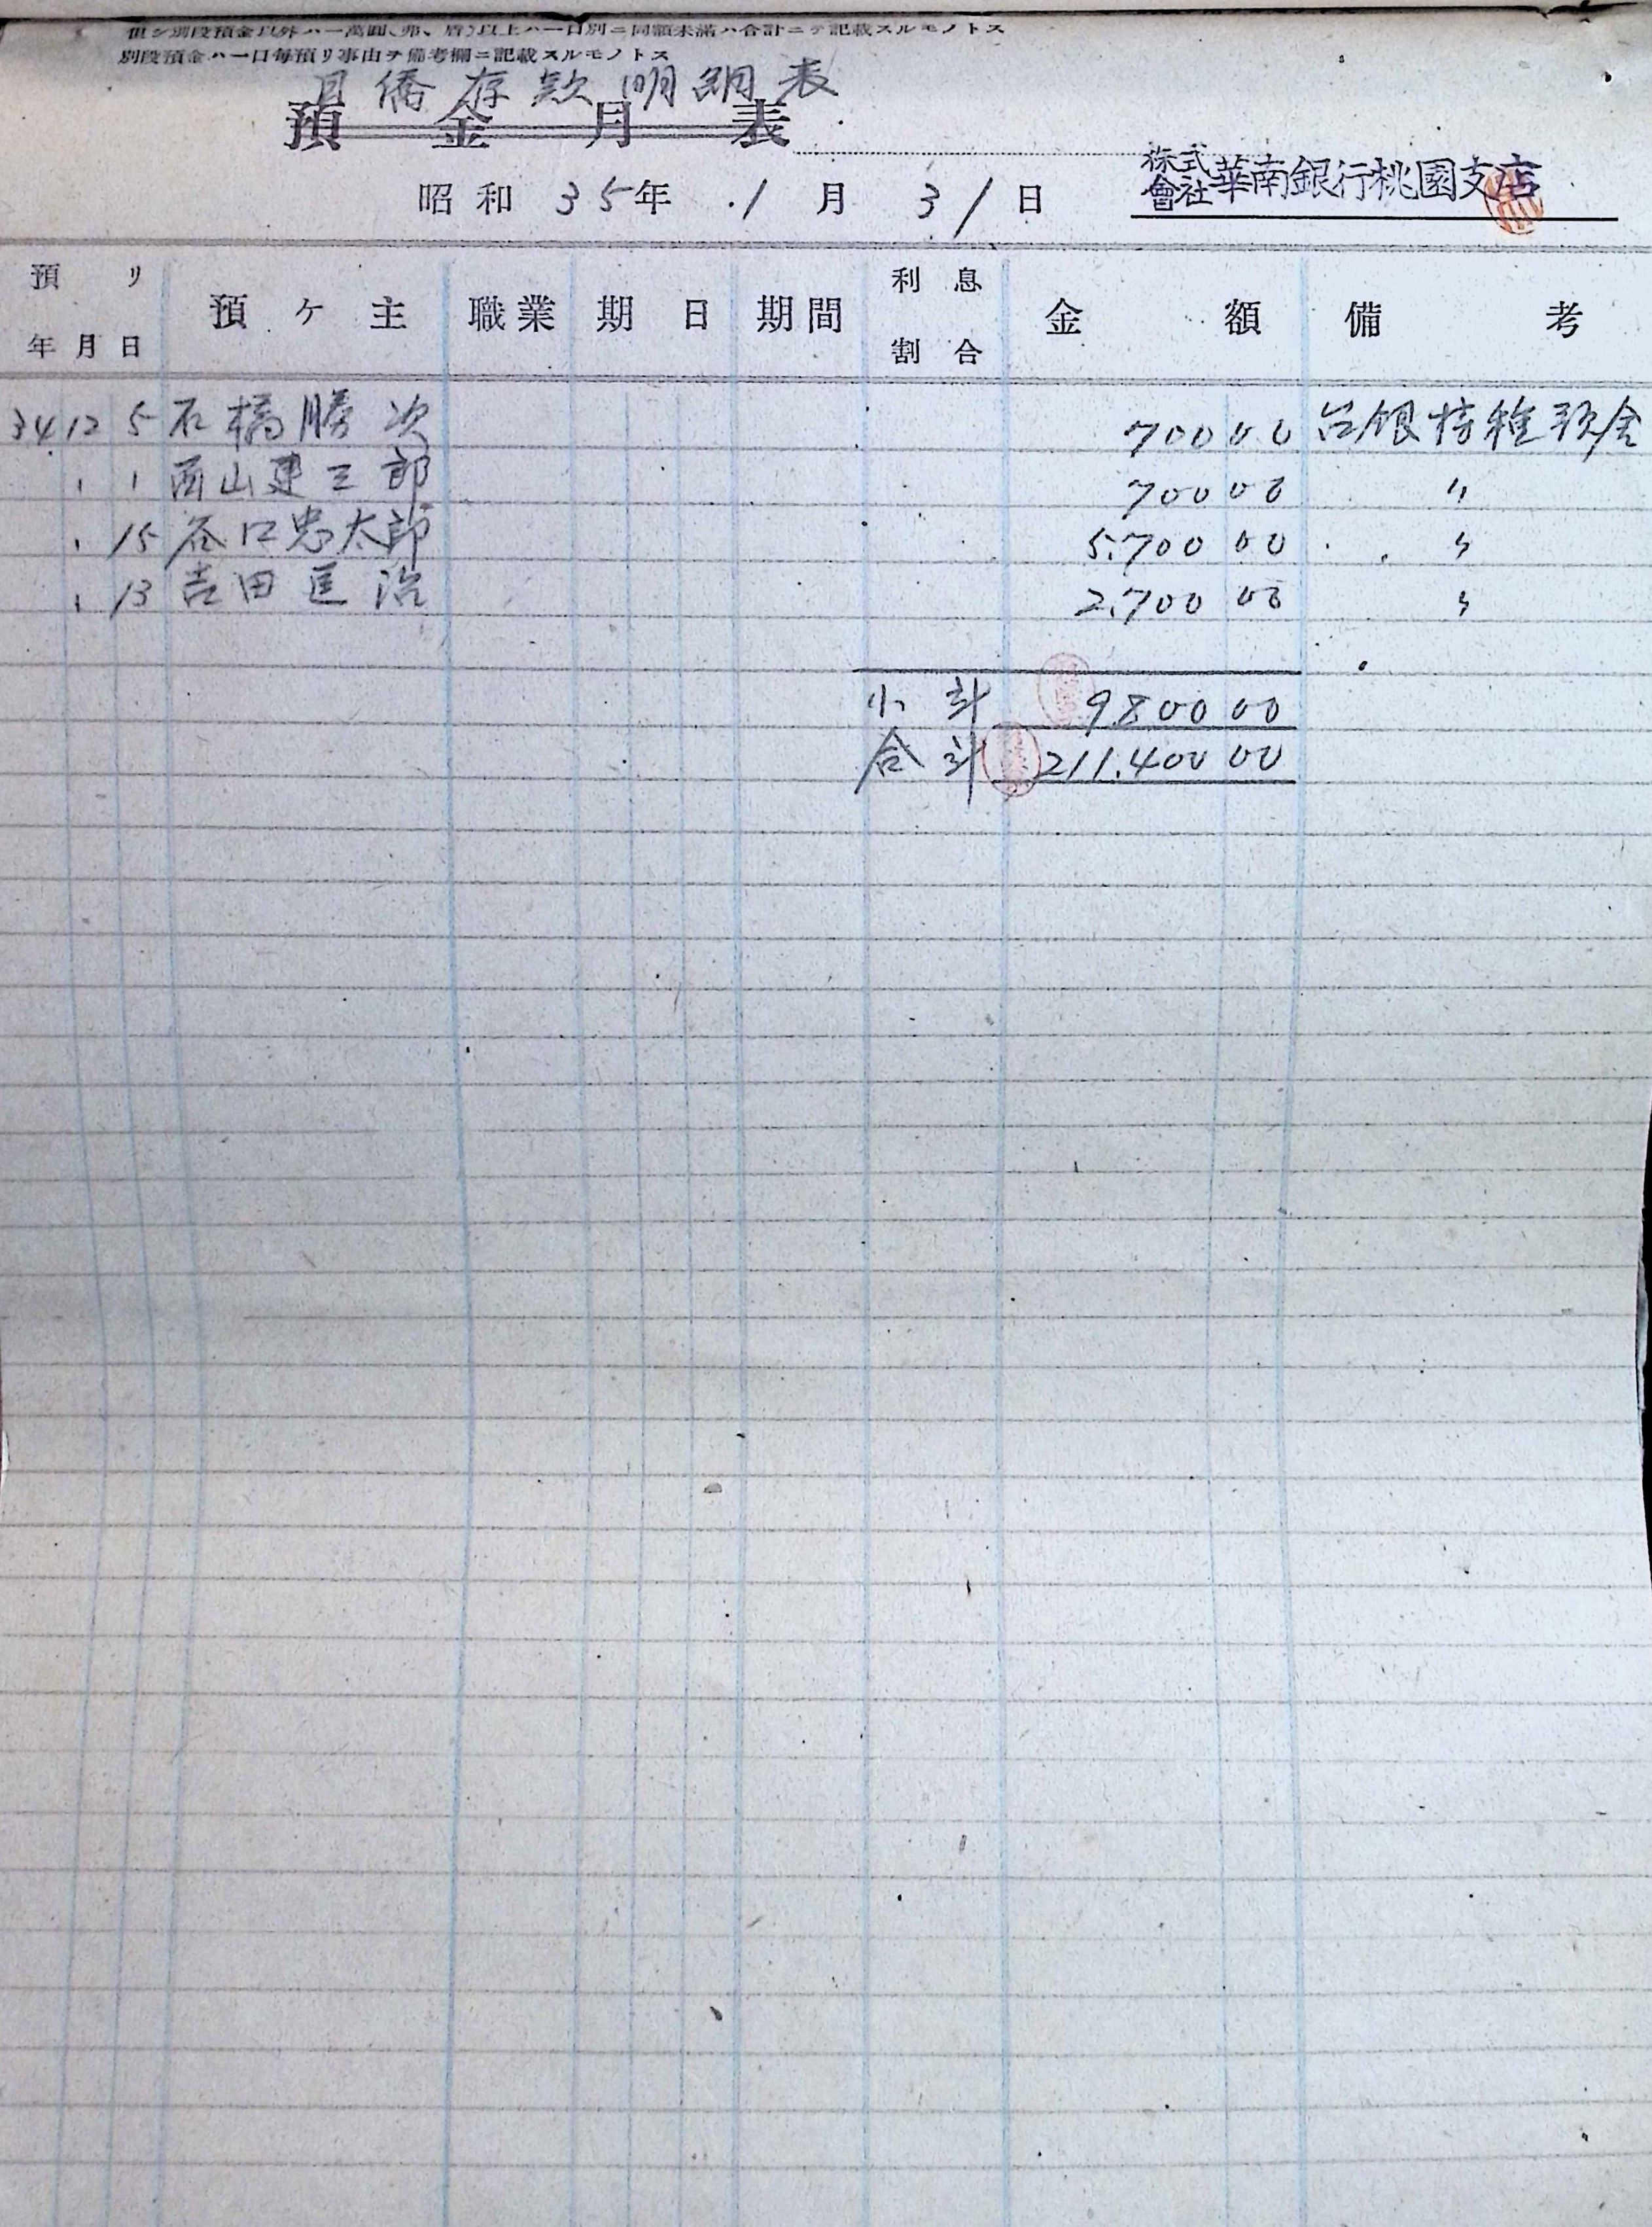 但シ別段預金以外ハ一萬圓、弗、唐)以上ハ一口別ニ同額未滿ハ合計ニテ記載スルモノトス
別段預金ハ一口每預リ事由ヲ備考欄ニ記載スルモノトス
日僑存款明細表
預金月表
昭和35年1月31日
株式會社華南銀行桃園支店
預リ年月日 預ケ主 職業 期日 期間 利息割合 金額 備考
34 12 5 石橋勝次 700 00 台銀特種預金
〃 1 西山建三郎 700 00 〃
〃 15 谷口忠太郎 5.700 00 〃
〃 13 吉田匡治 2.700 00 〃
小計 9800 00
合計 211.400 00